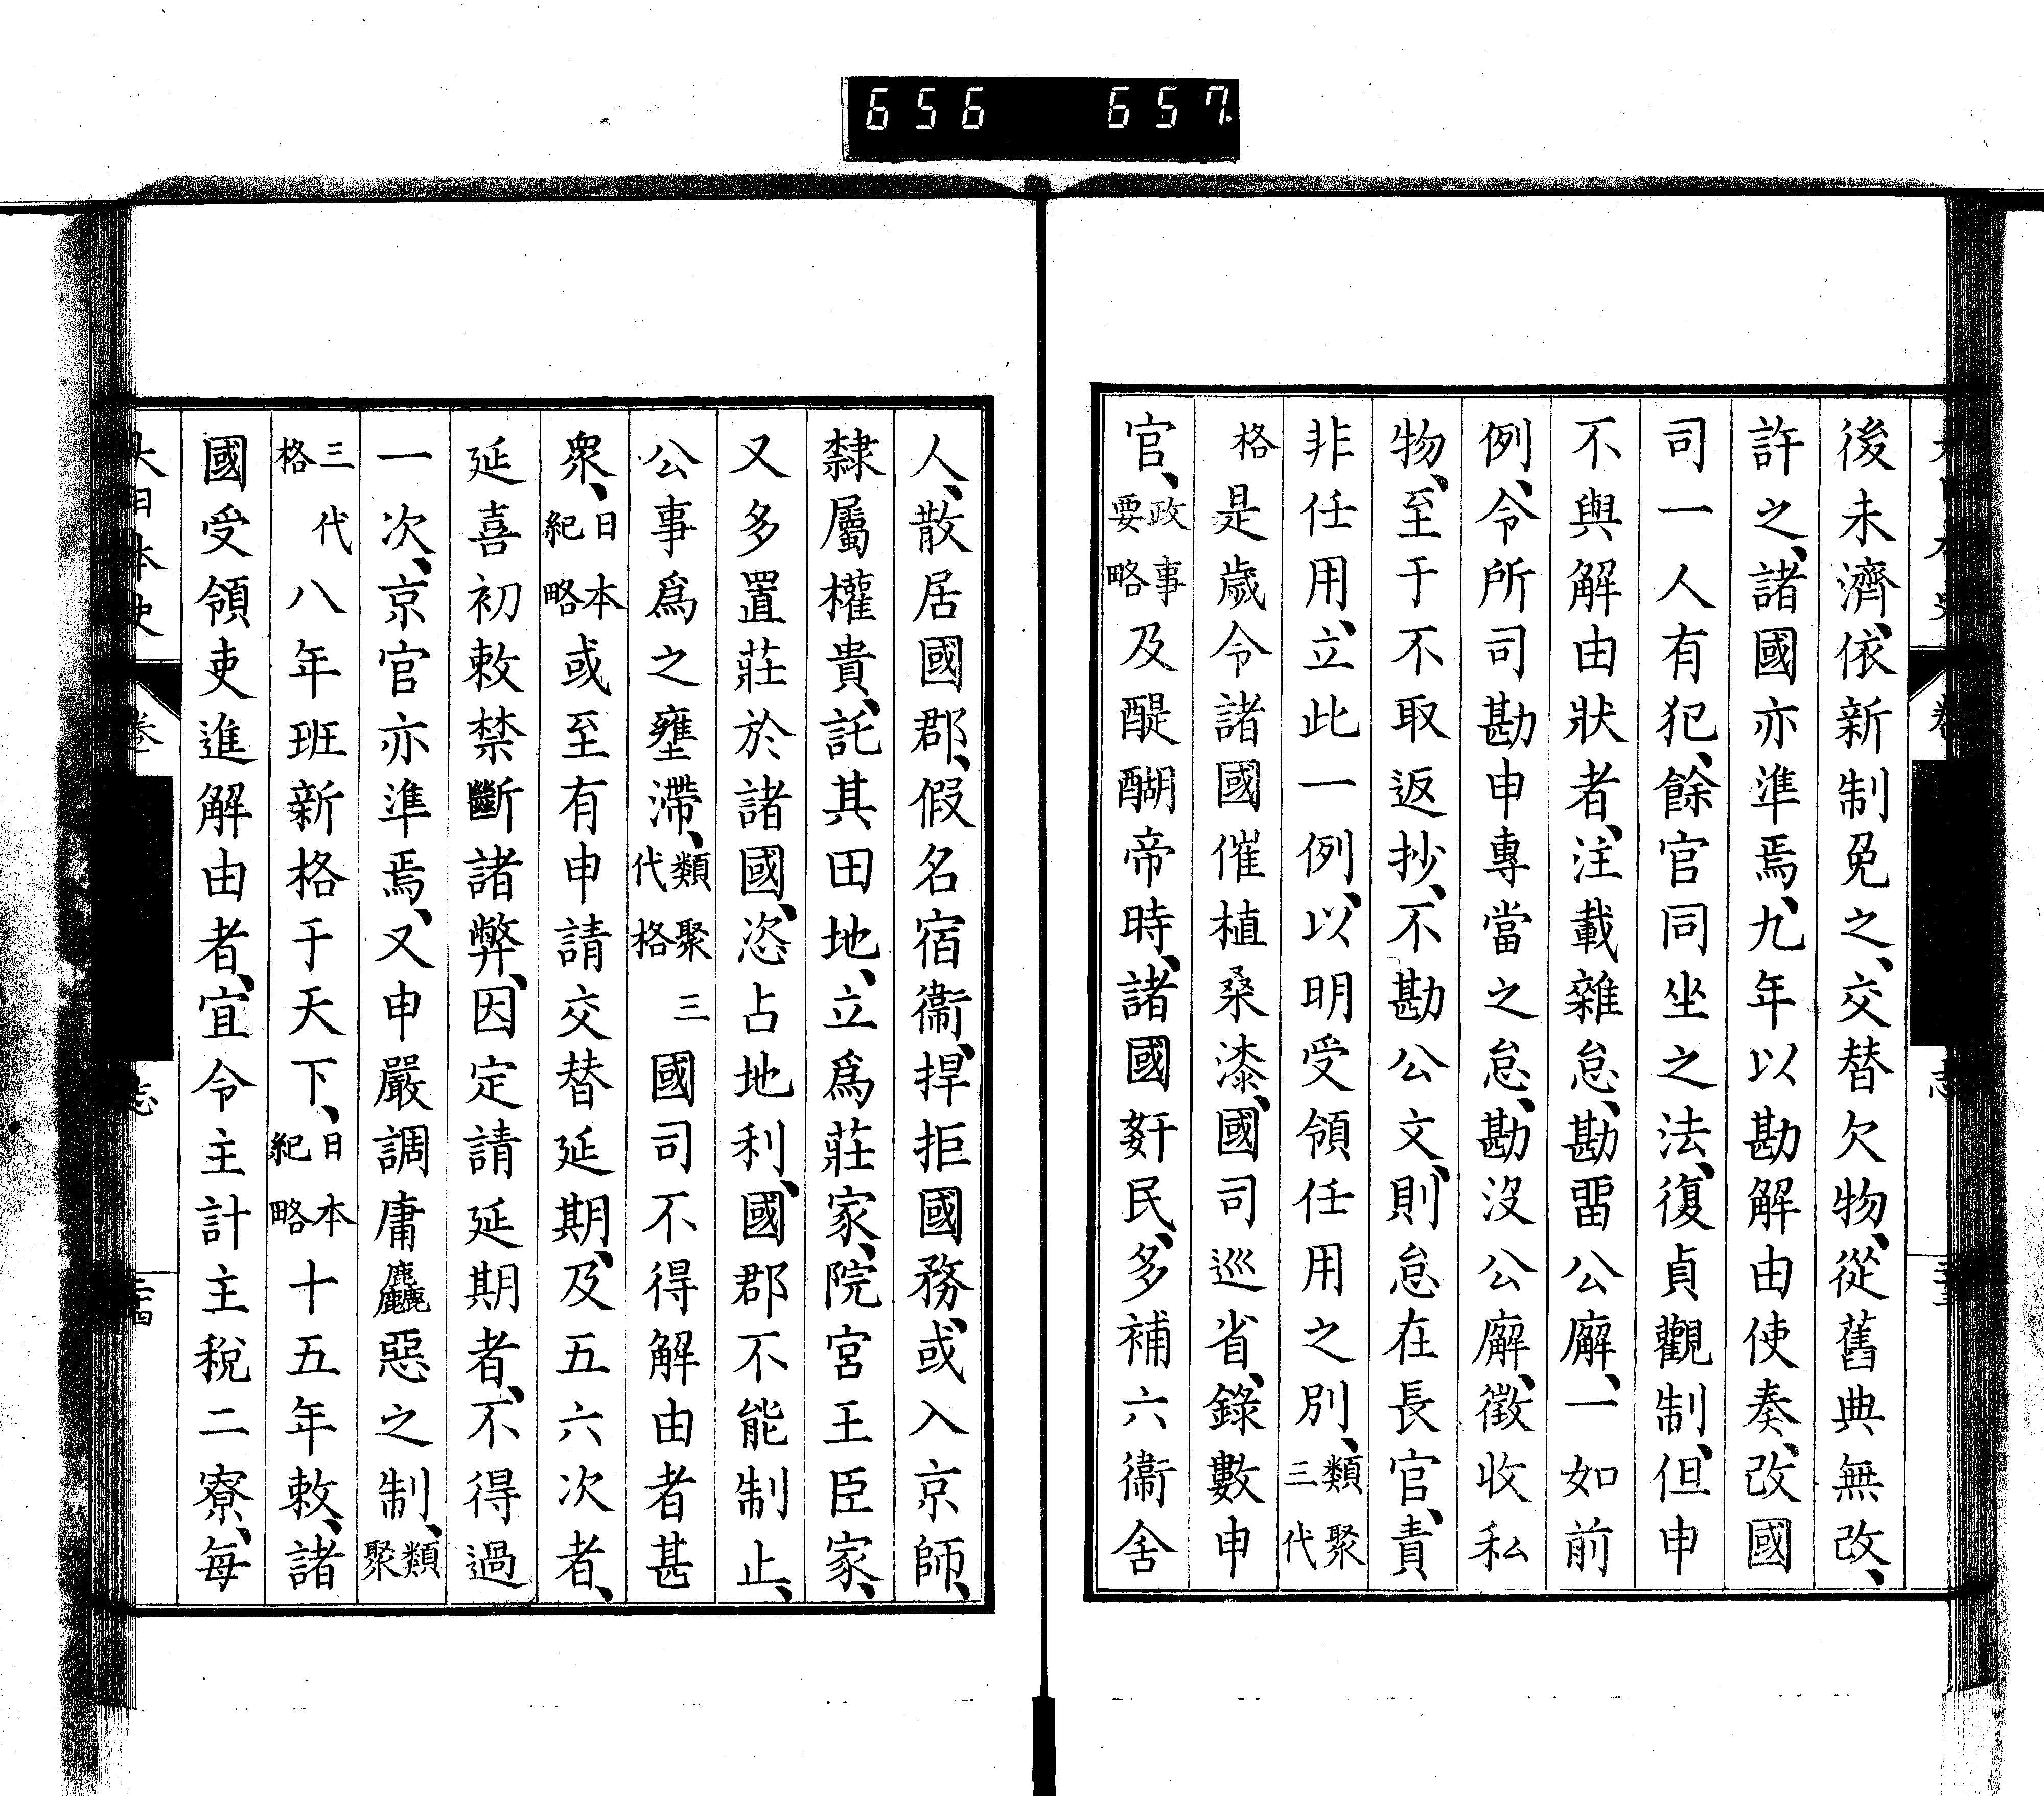 656 657
後未濟、依新制免之、交替欠物、從舊典無改、
許之、諸國亦準焉、九年以勘解由使奏、改國
司一人有犯、餘官同坐之法、復貞觀制、但申
不與解由狀者、注載雜怠、勘畱公廨、一如前
例、令所司勘申專當之怠、勘沒公廨、徵收私
物、至于不取返抄、不勘公文、則怠在長官、責
非任用、立此一例、以明受領任用之別、類聚三代
格是歲令諸國催植桑漆、國司巡省、錄數申
官、政事要略及醍醐帝時、諸國姧民、多補六衞舍
人、散居國郡、假名宿衞、捍拒國務、或入京師、
隸屬權貴、託其田地、立爲莊家、院宮王臣家、
又多置莊於諸國、恣占地利、國郡不能制止、
公事爲之壅滯、類聚三代格國司不得解由者甚
衆、日本紀略或至有申請交替延期、及五六次者、
延喜初敕禁斷諸弊、因定請延期者、不得過
一次、京官亦準焉、又申嚴調庸麤惡之制、類聚
三代格八年班新格于天下、日本紀略十五年敕、諸
國受領吏進解由者、宜令主計主稅二寮、每
大日本史 志